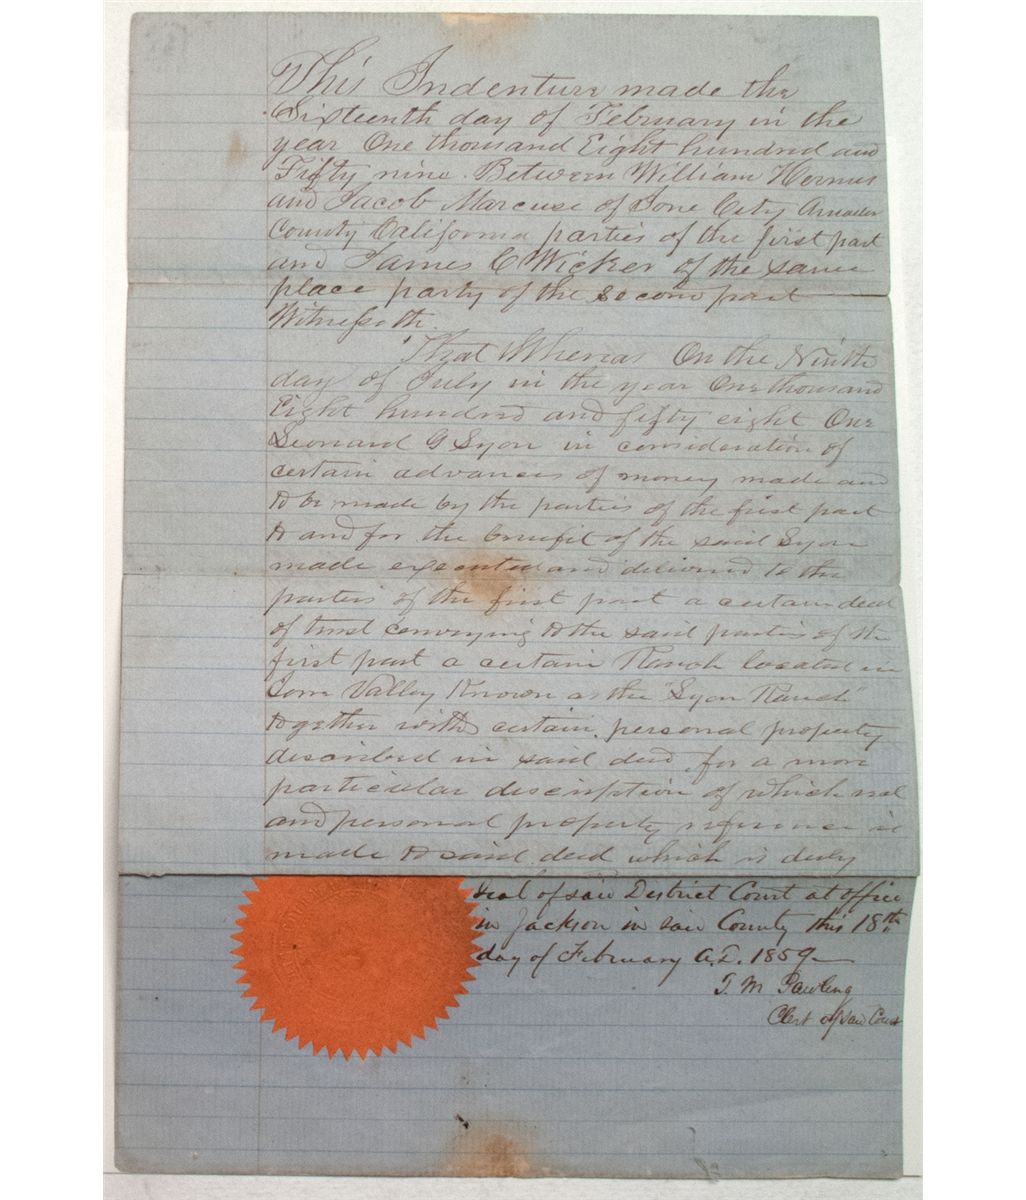 This Indenture made the
Sixteenth day of February in the
year One thousand Eight hundred and
Fifty nine Between William
and Jacob Marcuse of Ione City Amador
County California parties of the first part
and James C Wicker of the same
place party of the second part
Witnesseth.
That Whereas On the Ninth
day of July in the year One thousand
Eight hundred and fifty eight One
Leonard G Syon in consideration of
certain advances of money made and
to be made by the parties of the first part
to and for the benefit of the said Syon
made executed and delivered to the
parties of the first part a certain deed
of trust conveying to the said parties of the
first part a certain Ranch located in
Ione Valley Known as the "Syon Ranch"
together with certain personal property
described in said deed, for a more
particular description of which real
and personal property reference is
made to said deed which is duly
seal of said District Court at office
in Jackson in said County this 18th
day of February A.D. 1859
T. M. Pawling
Clerk of said Court